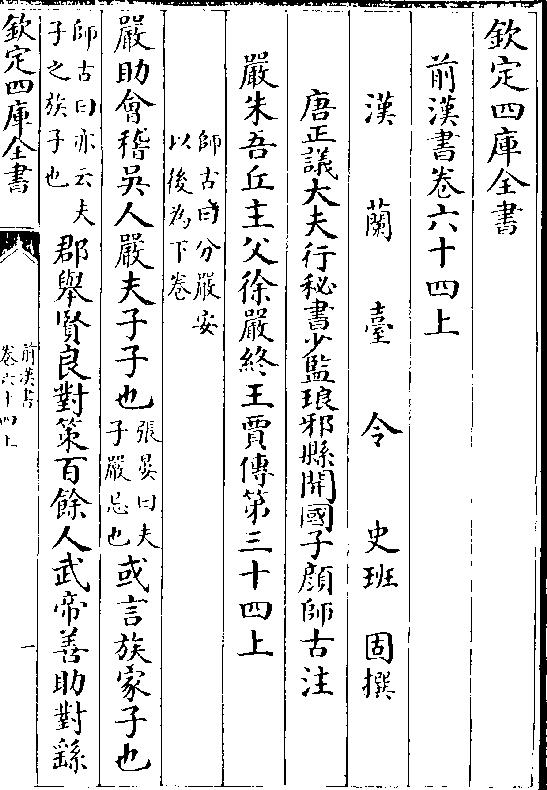 欽定四庫全書
前漢書卷六十四上
漢蘭臺令史班固撰
唐正議大夫行秘書少監琅邪縣開國子顔師古注
嚴朱吾丘主父徐嚴終王賈傳第三十四上
師古曰分嚴安
以後為下卷
嚴助會稽吳人嚴夫子子也張晏曰夫子嚴忌也或言族家子也
師古曰亦云夫子之族子也郡舉賢良對策百餘人武帝善助對繇
欽定四庫全書
前漢書
卷六十四上
一